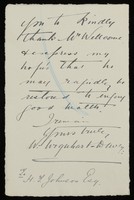 you to kindly
thank Mr Wellcome
& express my
hope that he
may rapidly be
restored to enjoy
good health
I am
Yours truly,
W. Urquhart
To
H. T. Johnson Esq